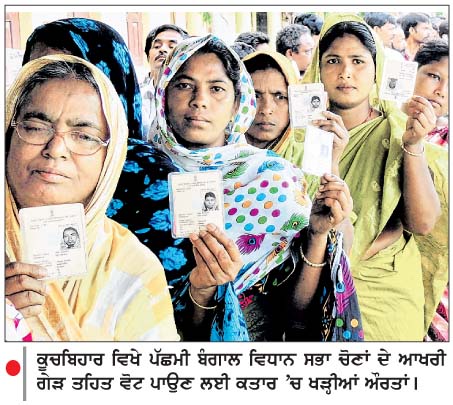 ਕੂਚਬਿਹਾਰ ਵਿਖੇ ਪੱਛਮੀ ਬੰਗਾਲ ਵਿਧਾਨ ਸਭਾ ਚੋਣਾਂ ਦੇ ਆਖਰੀ
ਗੇੜ ਤਹਿਤ ਵੋਟ ਪਾਉਣ ਲਈ ਕਤਾਰ ’ਚ ਖੜ੍ਹੀਆਂ ਔਰਤਾਂ।